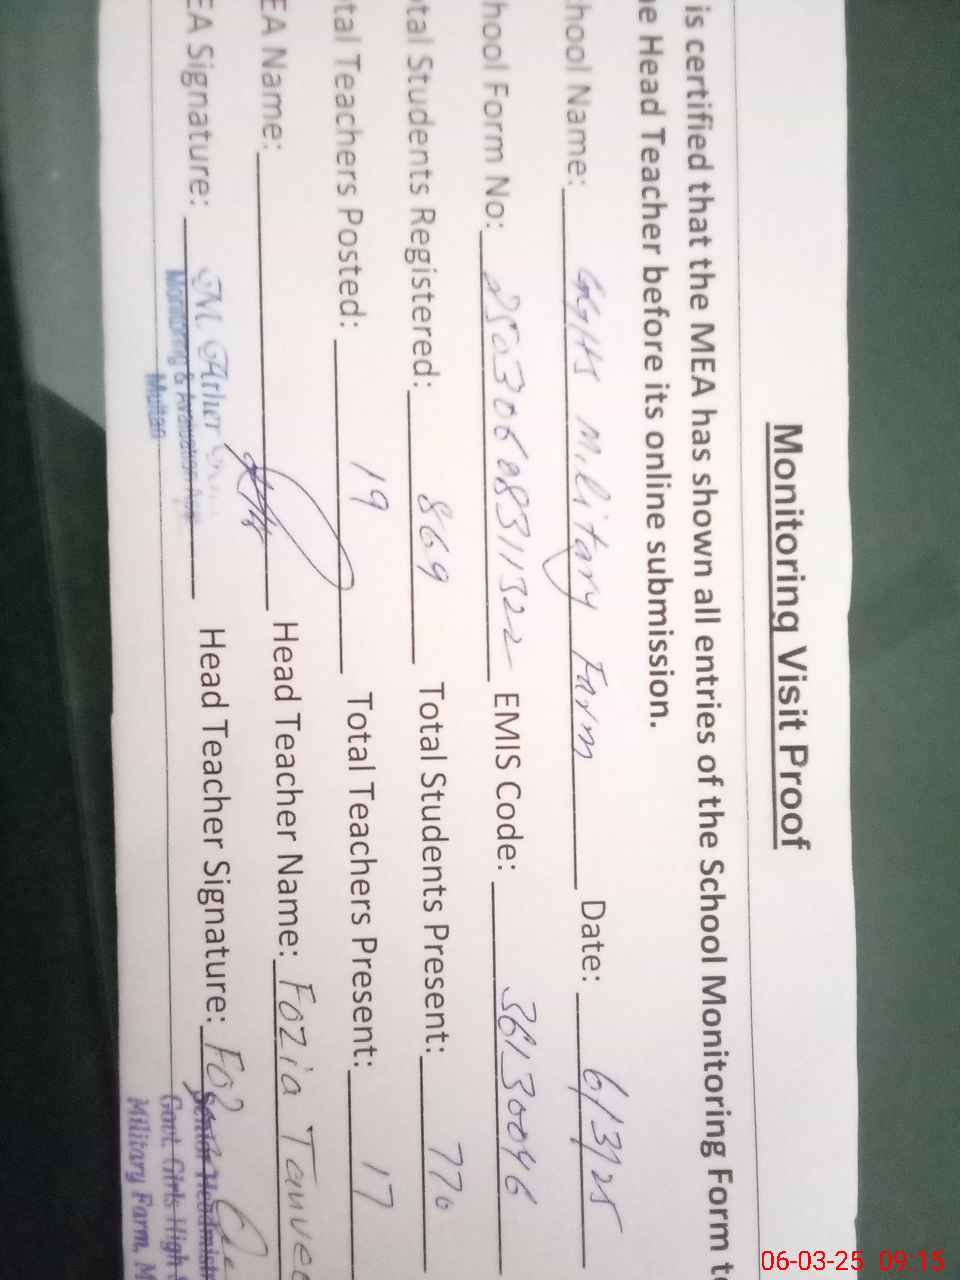 Monitoring Visit Proof
is certified that the MEA has shown all entries of the School Monitoring Form to
e Head Teacher before its online submission.
hool Name: GGHS Military Farm Date: 6/3/25
hool Form No: 2503068311322 EMIS Code: 36130046
tal Students Registered: 869 Total Students Present: 770
tal Teachers Posted: 19 Total Teachers Present: 17
EA Name: Head Teacher Name: Fozia Tanvee
EA Signature: Head Teacher Signature: Foz
M. Ather
Monitoring & Avaluation
Multan
Senior Headmistr
Govt. Girls High
Military Farm, M
06-03-25 09:15